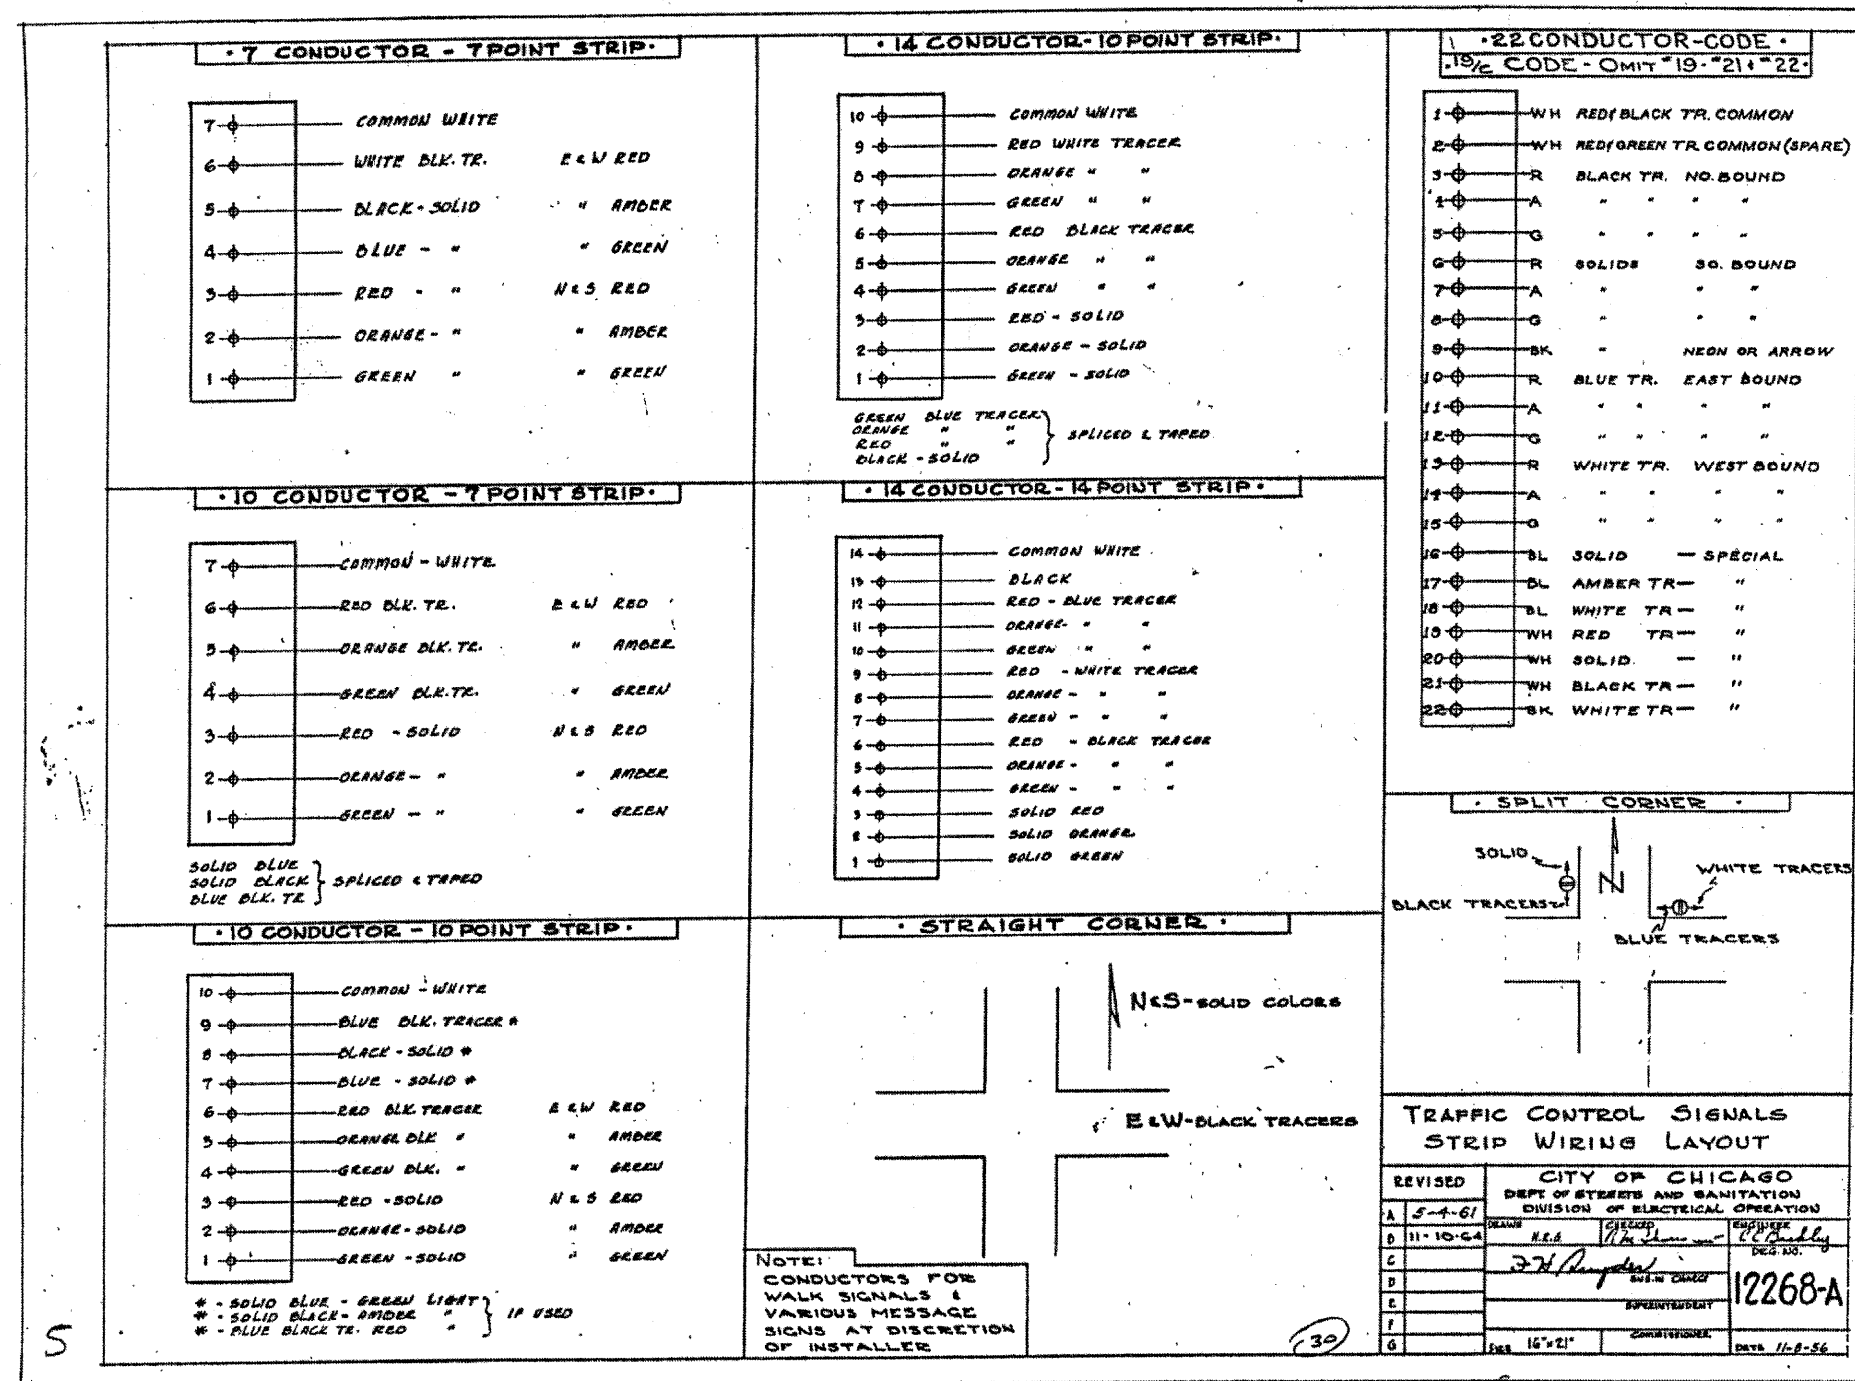 · 7 CONDUCTOR - 7 POINT STRIP ·
7 COMMON WHITE
6 WHITE BLK. TR. E & W RED
5 BLACK - SOLID " AMBER
4 BLUE - " " GREEN
3 RED - " N & S RED
2 ORANGE - " " AMBER
1 GREEN " " GREEN
· 10 CONDUCTOR - 7 POINT STRIP ·
7 COMMON - WHITE
6 RED BLK. TR. E & W RED
5 ORANGE BLK. TR. " AMBER
4 GREEN BLK. TR. " GREEN
3 RED - SOLID N & S RED
2 ORANGE - " " AMBER
1 GREEN - " " GREEN
SOLID BLUE
SOLID BLACK } SPLICED & TAPED
BLUE BLK. TR.
· 10 CONDUCTOR - 10 POINT STRIP ·
10 COMMON - WHITE
9 BLUE BLK. TRACER *
8 BLACK - SOLID *
7 BLUE - SOLID *
6 RED BLK. TRACER E & W RED
5 ORANGE BLK " " AMBER
4 GREEN BLK. " " GREEN
3 RED - SOLID N & S RED
2 ORANGE - SOLID " AMBER
1 GREEN - SOLID " GREEN
* - SOLID BLUE - GREEN LIGHT
* - SOLID BLACK - AMBER " } IF USED
* - BLUE BLACK TR. RED "
5
· 14 CONDUCTOR - 10 POINT STRIP ·
10 COMMON WHITE
9 RED WHITE TRACER
8 ORANGE " "
7 GREEN " "
6 RED BLACK TRACER
5 ORANGE " "
4 GREEN " "
3 RED - SOLID
2 ORANGE - SOLID
1 GREEN - SOLID
GREEN BLUE TRACER
ORANGE " "
RED " " } SPLICED & TAPED
BLACK - SOLID
· 14 CONDUCTOR - 14 POINT STRIP ·
14 COMMON WHITE
13 BLACK
12 RED - BLUE TRACER
11 ORANGE - " "
10 GREEN " "
9 RED - WHITE TRACER
8 ORANGE - " "
7 GREEN - " "
6 RED - BLACK TRACER
5 ORANGE - " "
4 GREEN - " "
3 SOLID RED
2 SOLID ORANGE
1 SOLID GREEN
· STRAIGHT CORNER ·
N & S - SOLID COLORS
E & W - BLACK TRACERS
NOTE:
CONDUCTORS FOR
WALK SIGNALS &
VARIOUS MESSAGE
SIGNS AT DISCRETION
OF INSTALLER
30
· 22 CONDUCTOR - CODE ·
· 19/C CODE - OMIT #19 - #21 & #22 ·
1 WH RED & BLACK TR. COMMON
2 WH RED & GREEN TR COMMON (SPARE)
3 R BLACK TR. NO. BOUND
4 A " " " "
5 G " " " "
6 R SOLIDS SO. BOUND
7 A " " "
8 G " " "
9 BK " NEON OR ARROW
10 R BLUE TR. EAST BOUND
11 A " " " "
12 G " " " "
13 R WHITE TR. WEST BOUND
14 A " " " "
15 G " " " "
16 BL SOLID — SPECIAL
17 BL AMBER TR — "
18 BL WHITE TR — "
19 WH RED TR — "
20 WH SOLID — "
21 WH BLACK TR — "
22 BK WHITE TR — "
· SPLIT CORNER ·
SOLID
N
WHITE TRACERS
BLACK TRACERS
BLUE TRACERS
TRAFFIC CONTROL SIGNALS
STRIP WIRING LAYOUT
REVISED
A 5-4-61
B 11-10-64
C
D
E
F
G
CITY OF CHICAGO
DEPT OF STREETS AND SANITATION
DIVISION OF ELECTRICAL OPERATION
DRAWN CHECKED ENGINEER
ENG. IN CHARGE
SUPERINTENDENT
COMMISSIONER
SIZE 16"x21"
12268-A
DATE 11-8-56